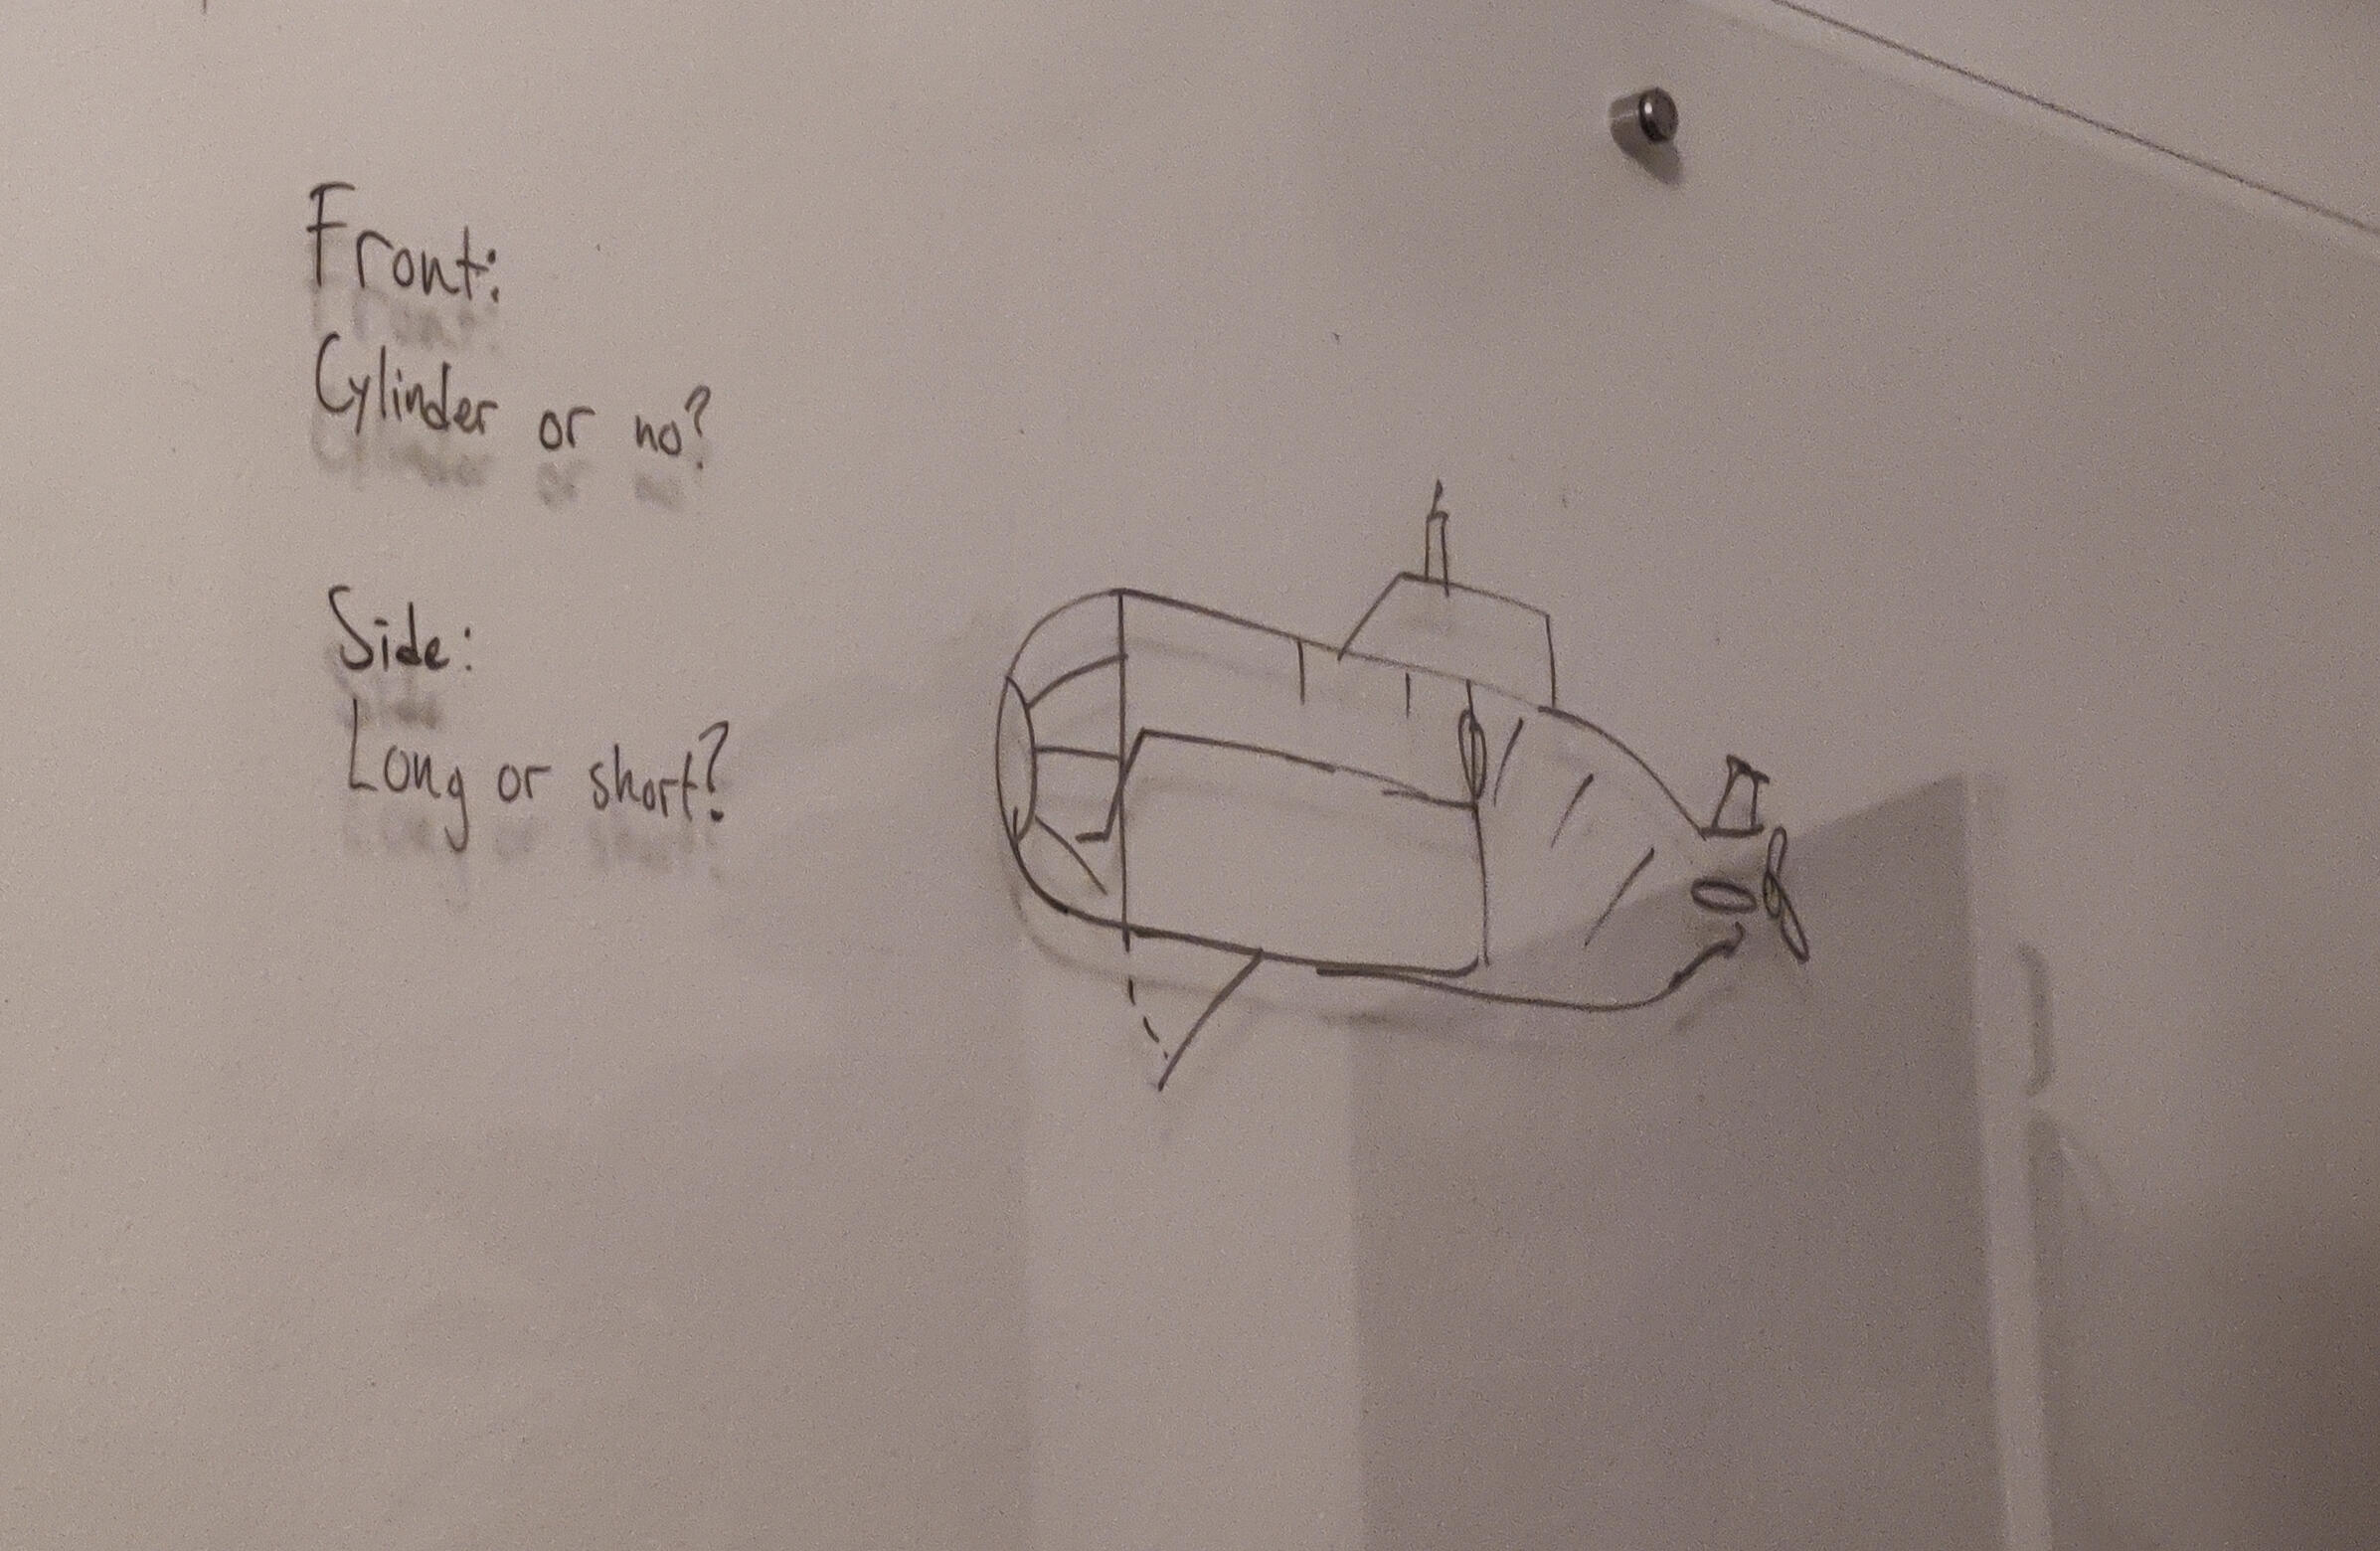 Front:
Cylinder or no?
Side:
Long or short?